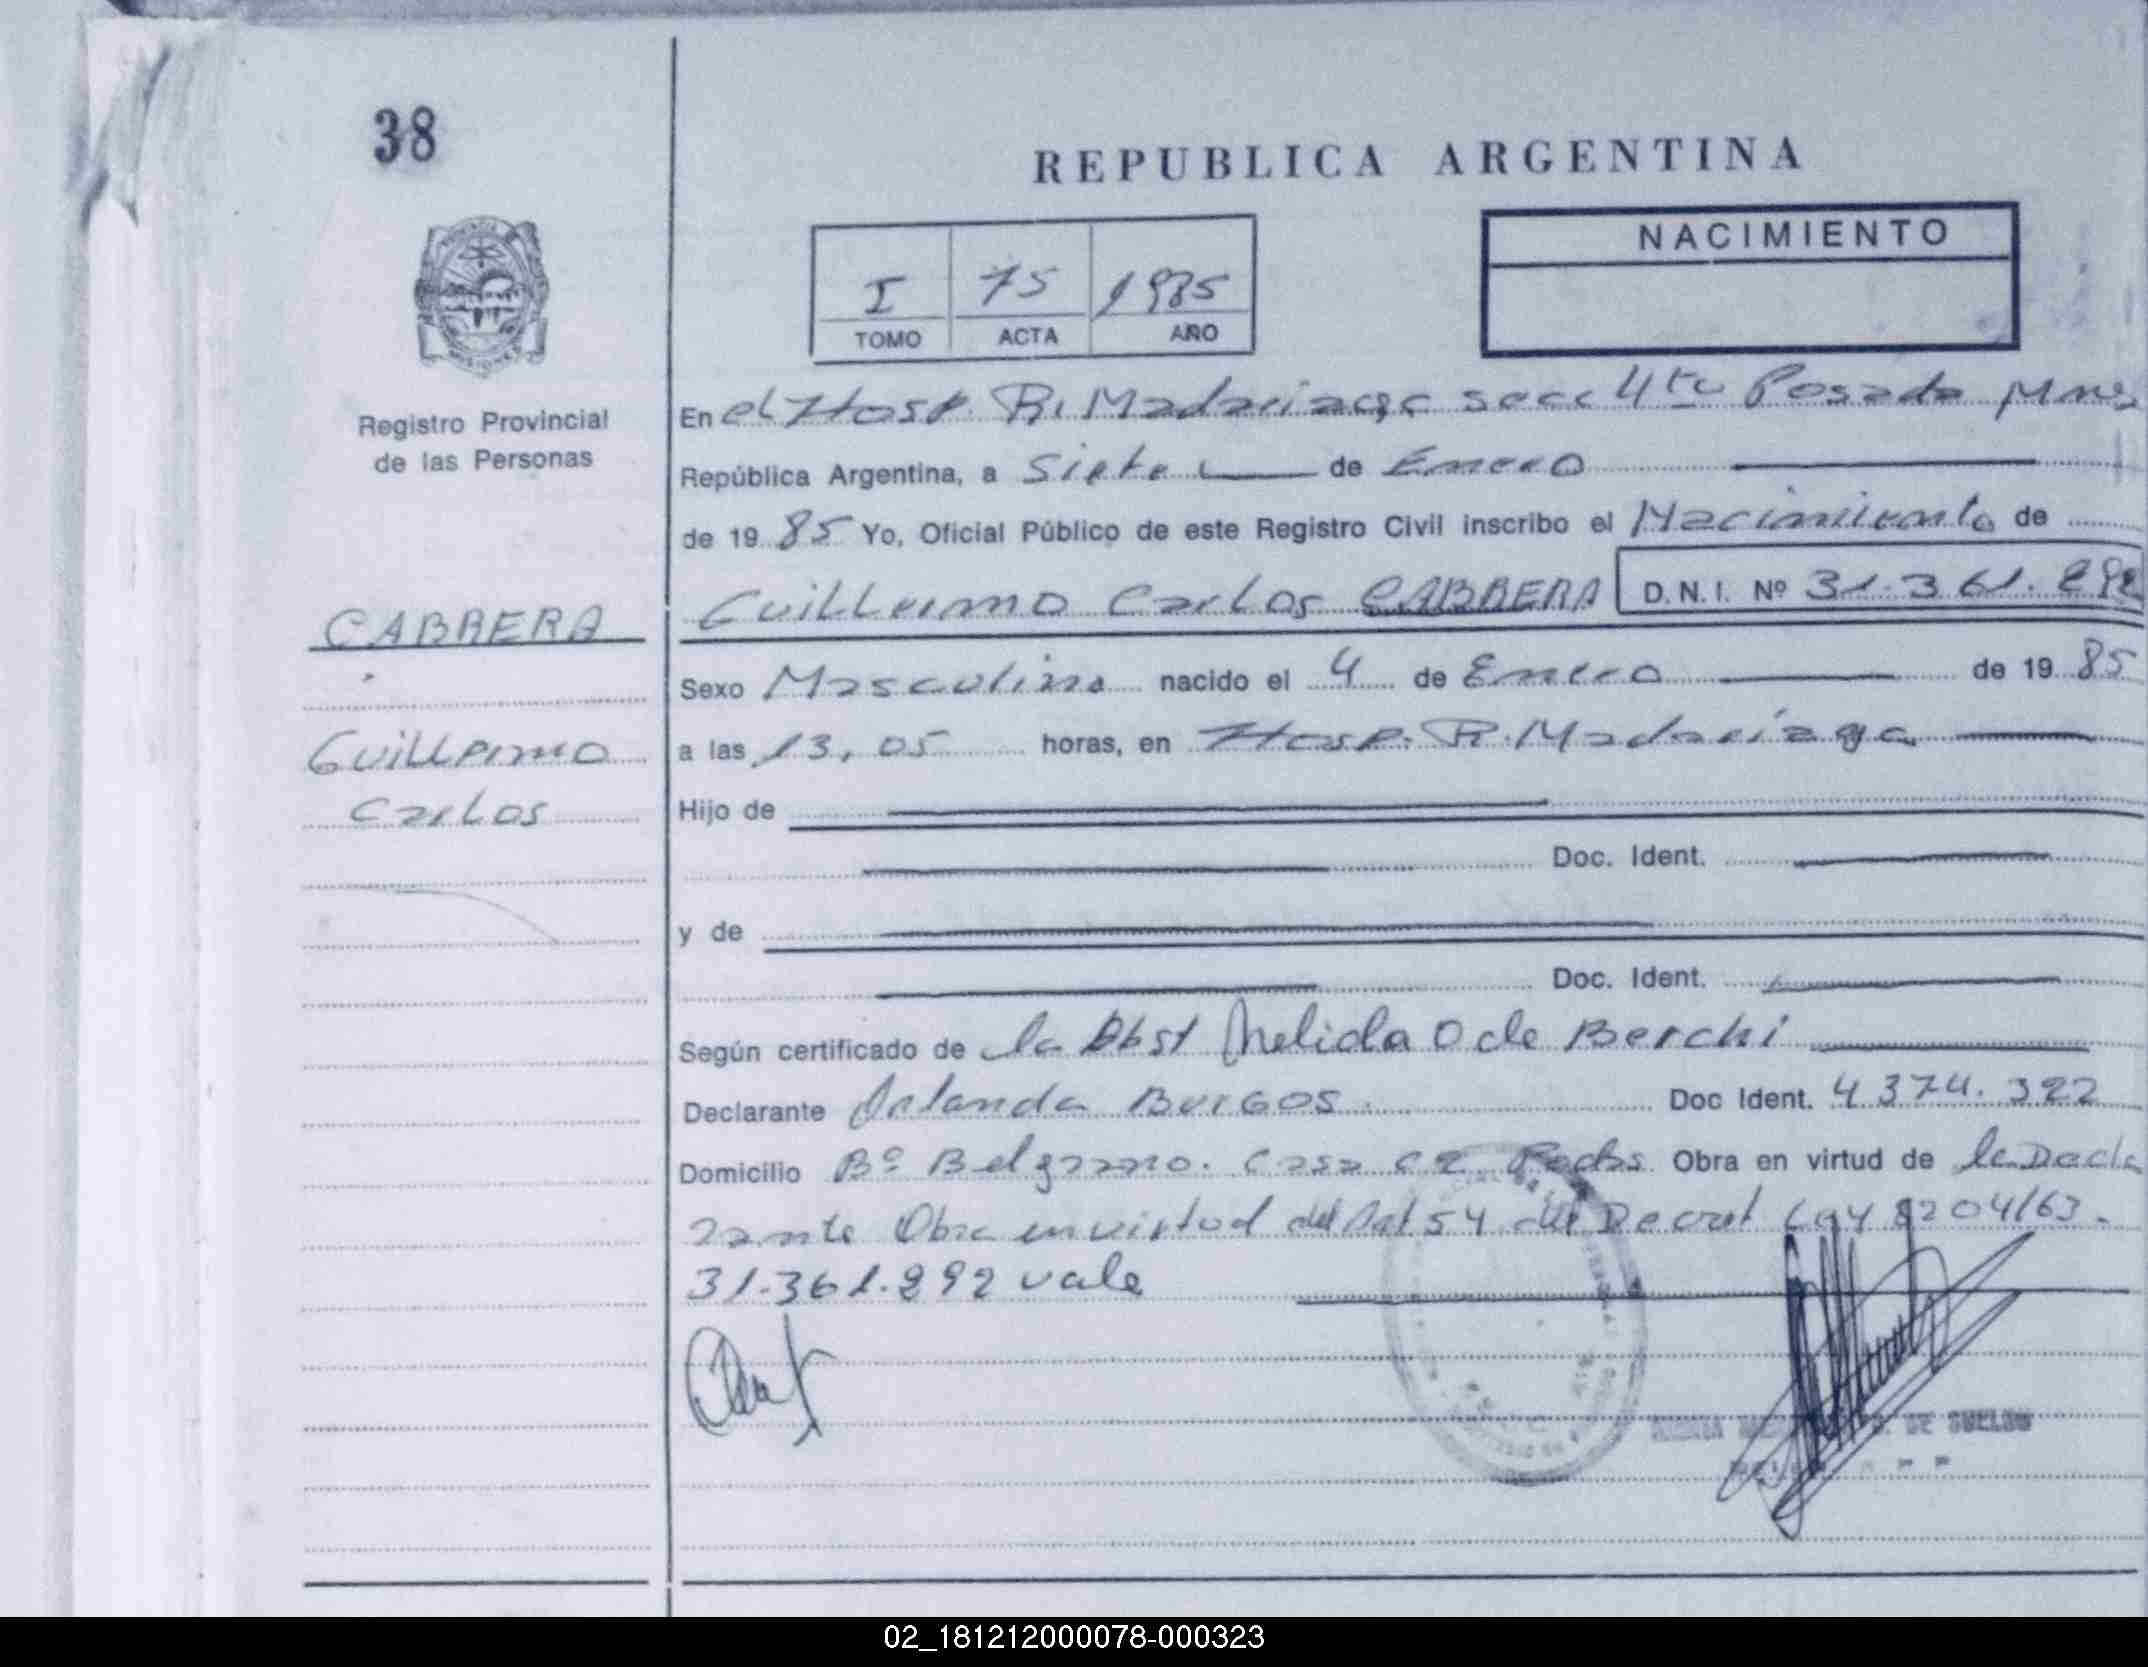 38
REPUBLICA ARGENTINA
NACIMIENTO
I 75 1985
TOMO ACTA AÑO
Registro Provincial
de las Personas
En el Hosp. R. Madariaga secc 4ta Posadas Mnes
República Argentina, a Siete de Enero
de 19 85 Yo, Oficial Público de este Registro Civil inscribo el Nacimiento de
Guillermo Carlos CABRERA D.N.I. Nº 31.361.292
CABRERA
Guillermo
Carlos
Sexo Masculino nacido el 4 de Enero de 19 85
a las 13,05 horas, en Hosp. R. Madariaga
Hijo de
Doc. Ident.
y de
Doc. Ident.
Según certificado de la Obst Nelida O de Berchi
Declarante Orlanda Burgos Doc Ident. 4.374.322
Domicilio Bº Belgrano. Casa Pdas. Obra en virtud de la Decla
rante Obra en virtud del Art 54 del Decret Ley 8204/63.
31.361.292 vale
DE SUELDO
02_181212000078-000323